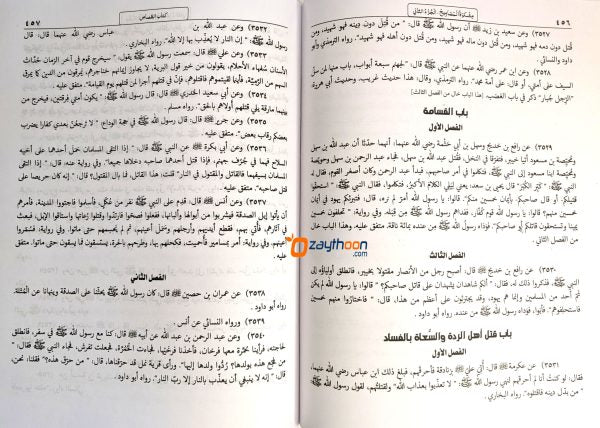 ٤٥٦
مشكاة المصابيح - الجزء الثاني
٣٥٢٧) وعن سعيد بن زيد ﷺ أن رسول الله ﷺ قال: " من قُتل دون دينه فهو شهيد، ومن
قُتل دون دمه فهو شهيد، ومن قُتل دون ماله فهو شهيد، ومن قُتل دون أهله فهو شهيد". رواه الترمذي وأبو
داود والنسائي .
٣٥٢٨) وعن ابن عمر رضي الله عنهما عن النبي ﷺ قال: "لجهنم سبعة أبواب، باب منها لمن سل
السيف على أمتي، أو قال: على أمة محمد". رواه الترمذي، وقال: هذا حديث غريب، وحديث أبي هريرة:
"الرجل جبار" ذكر في باب الغصب. (هذا الباب خال من الفصل الثالث)
باب القسامة
الفصل الأول
٣٥٢٩) عن رافع بن خديج وسهل بن أبي حثمة رضي الله عنهما، أنهما حدثا أن عبد الله بن سهل
ومحيصة بن مسعود أتيا خيبر، فتفرقا في النخل، فقتل عبد الله بن سهل، فجاء عبد الرحمن بن سهل وحويصة
ومحيصة ابنا مسعود إلى النبي ﷺ، فتكلموا في أمر صاحبهم، فبدأ عبد الرحمن وكان أصغر القوم، فقال له
النبي ﷺ: "كبر الكبر" قال يحيى بن سعيد: يعني ليلي الكلام الأكبر، فتكلموا، فقال النبي ﷺ: "استحقوا
قتيلكم، أو قال صاحبكم بأيمان خمسين منكم" قالوا: يا رسول الله أمر لم نره، قال: فتبرئكم يهود في أيمان
خمسين منهم" قالوا: يا رسول الله قوم كفار، ففداهم رسول الله ﷺ من قبله، وفي رواية: "تحلفون خمسين
يمينا وتستحقون قاتلكم أو صاحبكم، فوداه رسول الله ﷺ من عنده بمائة ناقة. متفق عليه. وهذا الباب خال
من الفصل الثاني.
الفصل الثالث
٣٥٣٠) عن رافع بن خديج ﷺ قال: أصبح رجل من الأنصار مقتولا بخيبر، فانطلق أولياؤه إلى
النبي ﷺ، فذكروا ذلك له، فقال: "ألكم شاهدان يشهدان على قاتل صاحبكم؟" قالوا: يا رسول الله لم يكن
ثم أحد من المسلمين وإنما هم يهود، وقد يجترئون على أعظم من هذا، قال: "فاختاروا منهم خمسين
فاستحلفوهم"، فأبوا، فوداه رسول الله ﷺ من عنده. رواه أبو داود .
باب قتل أهل الردة والسعاة بالفساد
الفصل الأول
٣٥٣١) عن عكرمة ﷺ قال: أُتي علي بزنادقة فأحرقهم، فبلغ ذلك ابن عباس رضي الله عنهما،
فقال: لو كنت أنا لم أحرقهم لنهي رسول الله ﷺ: " لا تعذبوا بعذاب الله" ولقتلتهم، لقول رسول الله ﷺ:
" من بدل دينه فاقتلوه". رواه البخاري .
كتاب القصاص
٤٥٧
٣٥٣٢) وعن عبد الله بن عباس رضي الله عنهما قال: قال
رسول الله ﷺ: "إن النار لا يعذب بها إلا الله". رواه البخاري.
٣٥٣٣) وعن علي ﷺ قال: سمعت رسول الله ﷺ يقول: " سيخرج قوم في آخر الزمان حُدّاث
الأسنان سفهاء الأحلام، يقولون من خير قول البرية، لا يجاوز إيمانهم حناجرهم، يمرقون من الدين كما يمرق
السهم من الرمية، فأينما لقيتموهم فاقتلوهم، فإن في قتلهم أجرا لمن قتلهم يوم القيامة". متفق عليه .
٣٥٣٤) وعن أبي سعيد الخدري ﷺ قال: قال رسول الله ﷺ: "يكون أمتي فرقتين، فيخرج من
بينهما مارقة يلي قتلهم أولاهم بالحق". رواه مسلم .
٣٥٣٥) وعن جرير ﷺ قال: قال رسول الله ﷺ في حجة الوداع: " لا ترجعن بعدي كفارا يضرب
بعضكم رقاب بعض". متفق عليه .
٣٥٣٦) وعن أبي بكرة ﷺ عن النبي ﷺ قال: " إذا التقى المسلمان حمل أحدهما على أخيه
السلاح فهما في جُرُف جهنم، فإذا قتل أحدهما صاحبه دخلاها جميعا". وفي رواية عنه: قال: "إذا التقى
المسلمان بسيفيهما فالقاتل والمقتول في النار" قلت: هذا القاتل، فما بال المقتول؟ قال: "إنه كان حريصا على
قتل صاحبه". متفق عليه .
٣٥٣٧) وعن أنس ﷺ قال: قدم على النبي ﷺ نفر من عُكل، فأسلموا فاجتووا المدينة، فأمرهم
أن يأتوا إبل الصدقة فيشربوا من أبوالها وألبانها، ففعلوا فصحوا فارتدوا وقتلوا رعاتها واستاقوا الإبل، فبعث
في آثارهم، فأتي بهم، فقطع أيديهم وأرجلهم وسمل أعينهم، ثم لم يحسمهم حتى ماتوا. وفي رواية: فسمروا
أعينهم، وفي رواية: أمر بمسامير فأحميت، فكحلهم بها، وطرحهم بالحرة، يستسقون فما يسقون حتى ماتوا.
متفق عليه .
الفصل الثاني
٣٥٣٨) عن عمران بن حصين ﷺ قال: كان رسول الله ﷺ يحثنا على الصدقة وينهانا عن المثلة.
رواه أبو داود .
٣٥٣٩) ورواه النسائي عن أنس .
٣٥٤٠) وعن عبد الرحمن بن عبد الله عن أبيه ﷺ قال: كنا مع رسول الله ﷺ في سفر، فانطلق
لحاجته، فرأينا حُمّرة معها فرخان، فأخذنا فرخيها، فجاءت الحمرة، فجعلت تفرش، فجاء النبي ﷺ فقال:
" من فجع هذه بولدها؟ ردوا ولدها إليها". ورأى قرية نمل قد حرقناها، قال: " من حرق هذه؟" فقلنا: نحن،
قال: "إنه لا ينبغي أن يعذب بالنار إلا رب النار". رواه أبو داود .
Ozaythoon.com